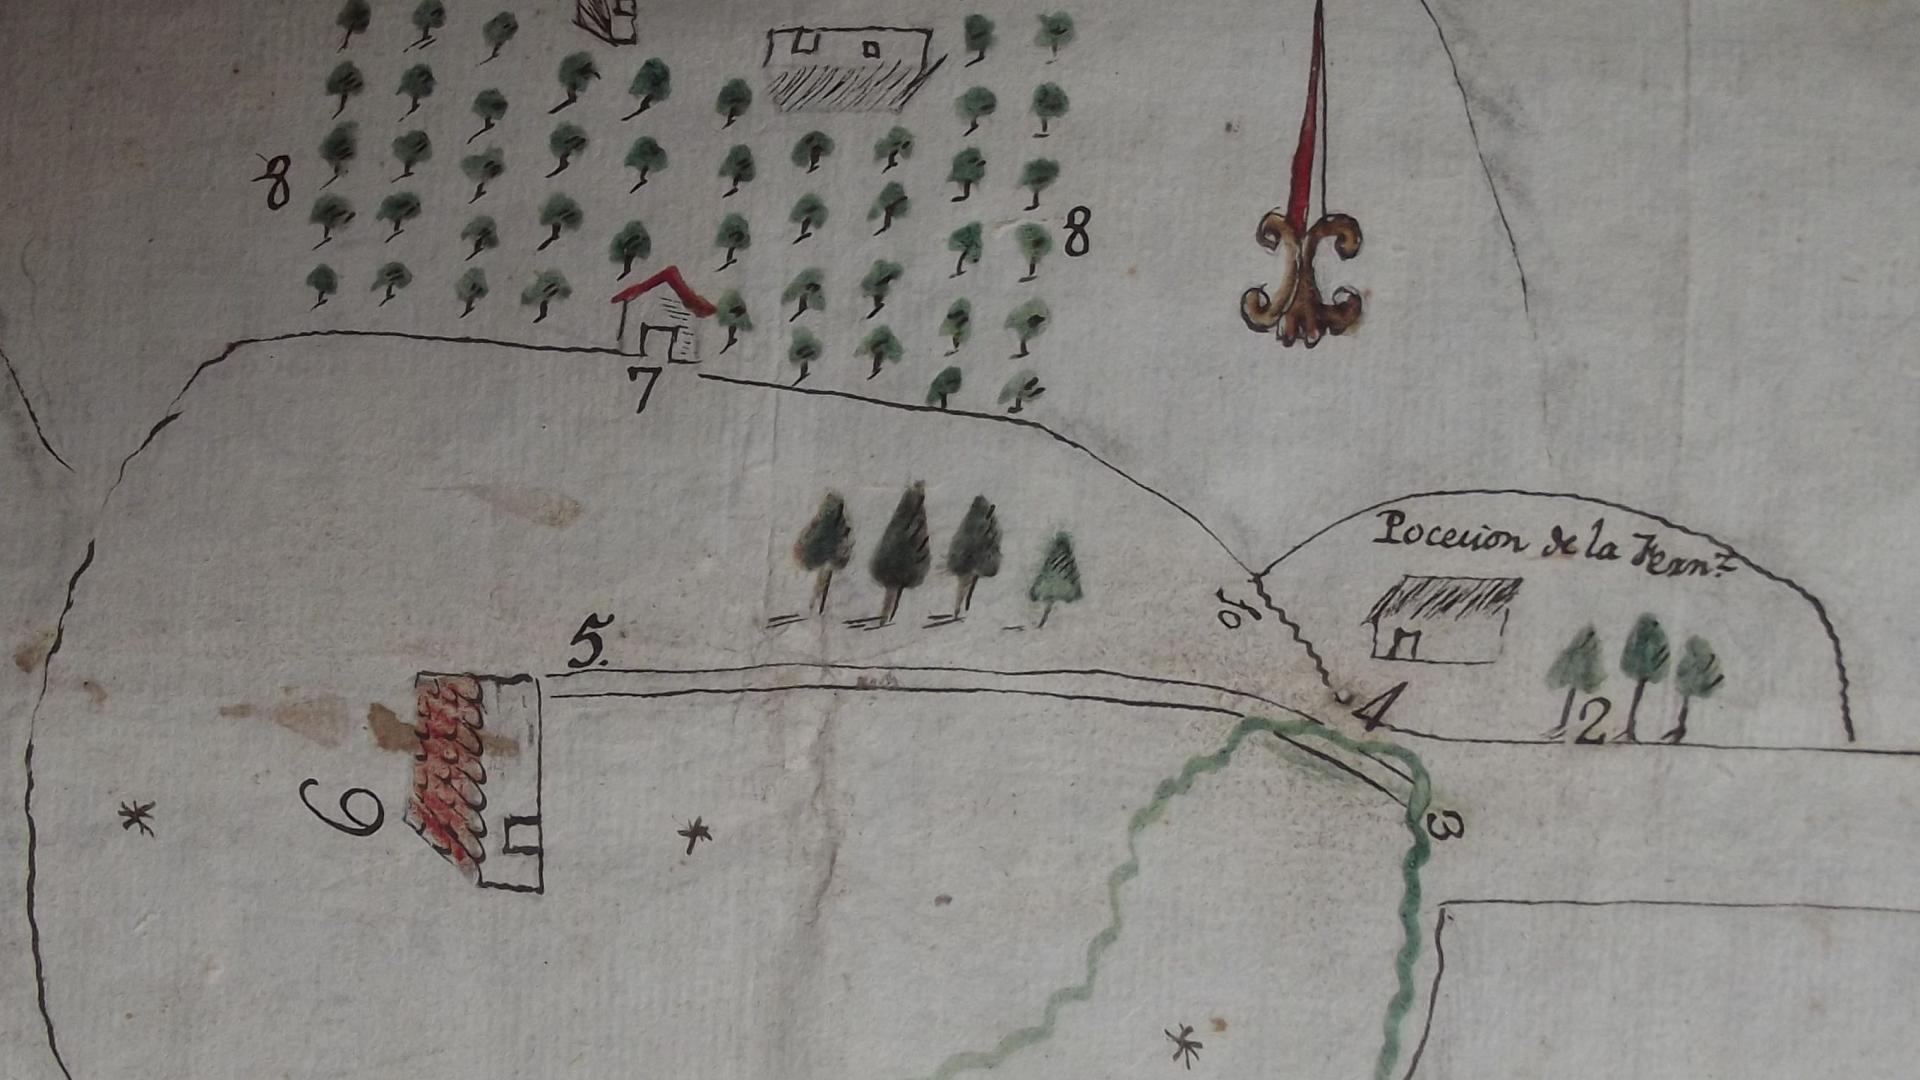 8
8
7
Pocecion de la Fernz
10
5.
4
2
6
3